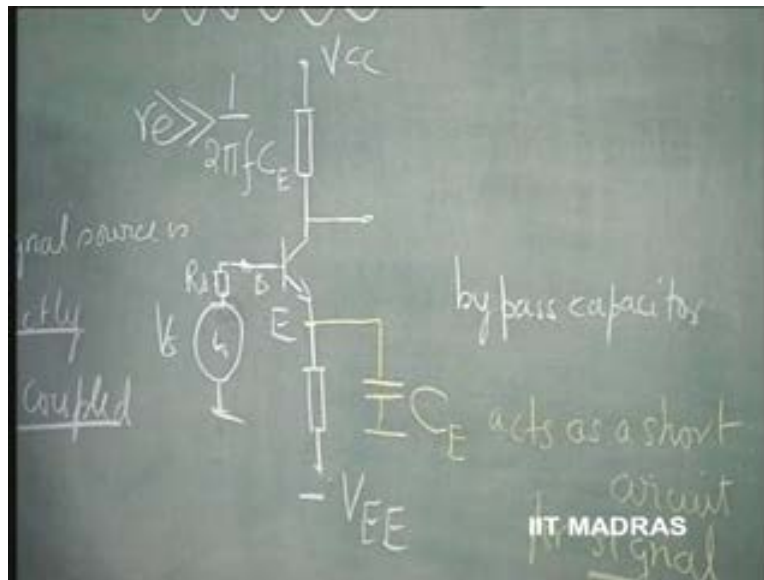 Vcc
re >> 1
2πfC_E
gnal source is
ctly
coupled
Rs
B
Vs
E
bypass capacitor
C_E acts as a short
circuit
for signal
-V_EE
IIT MADRAS